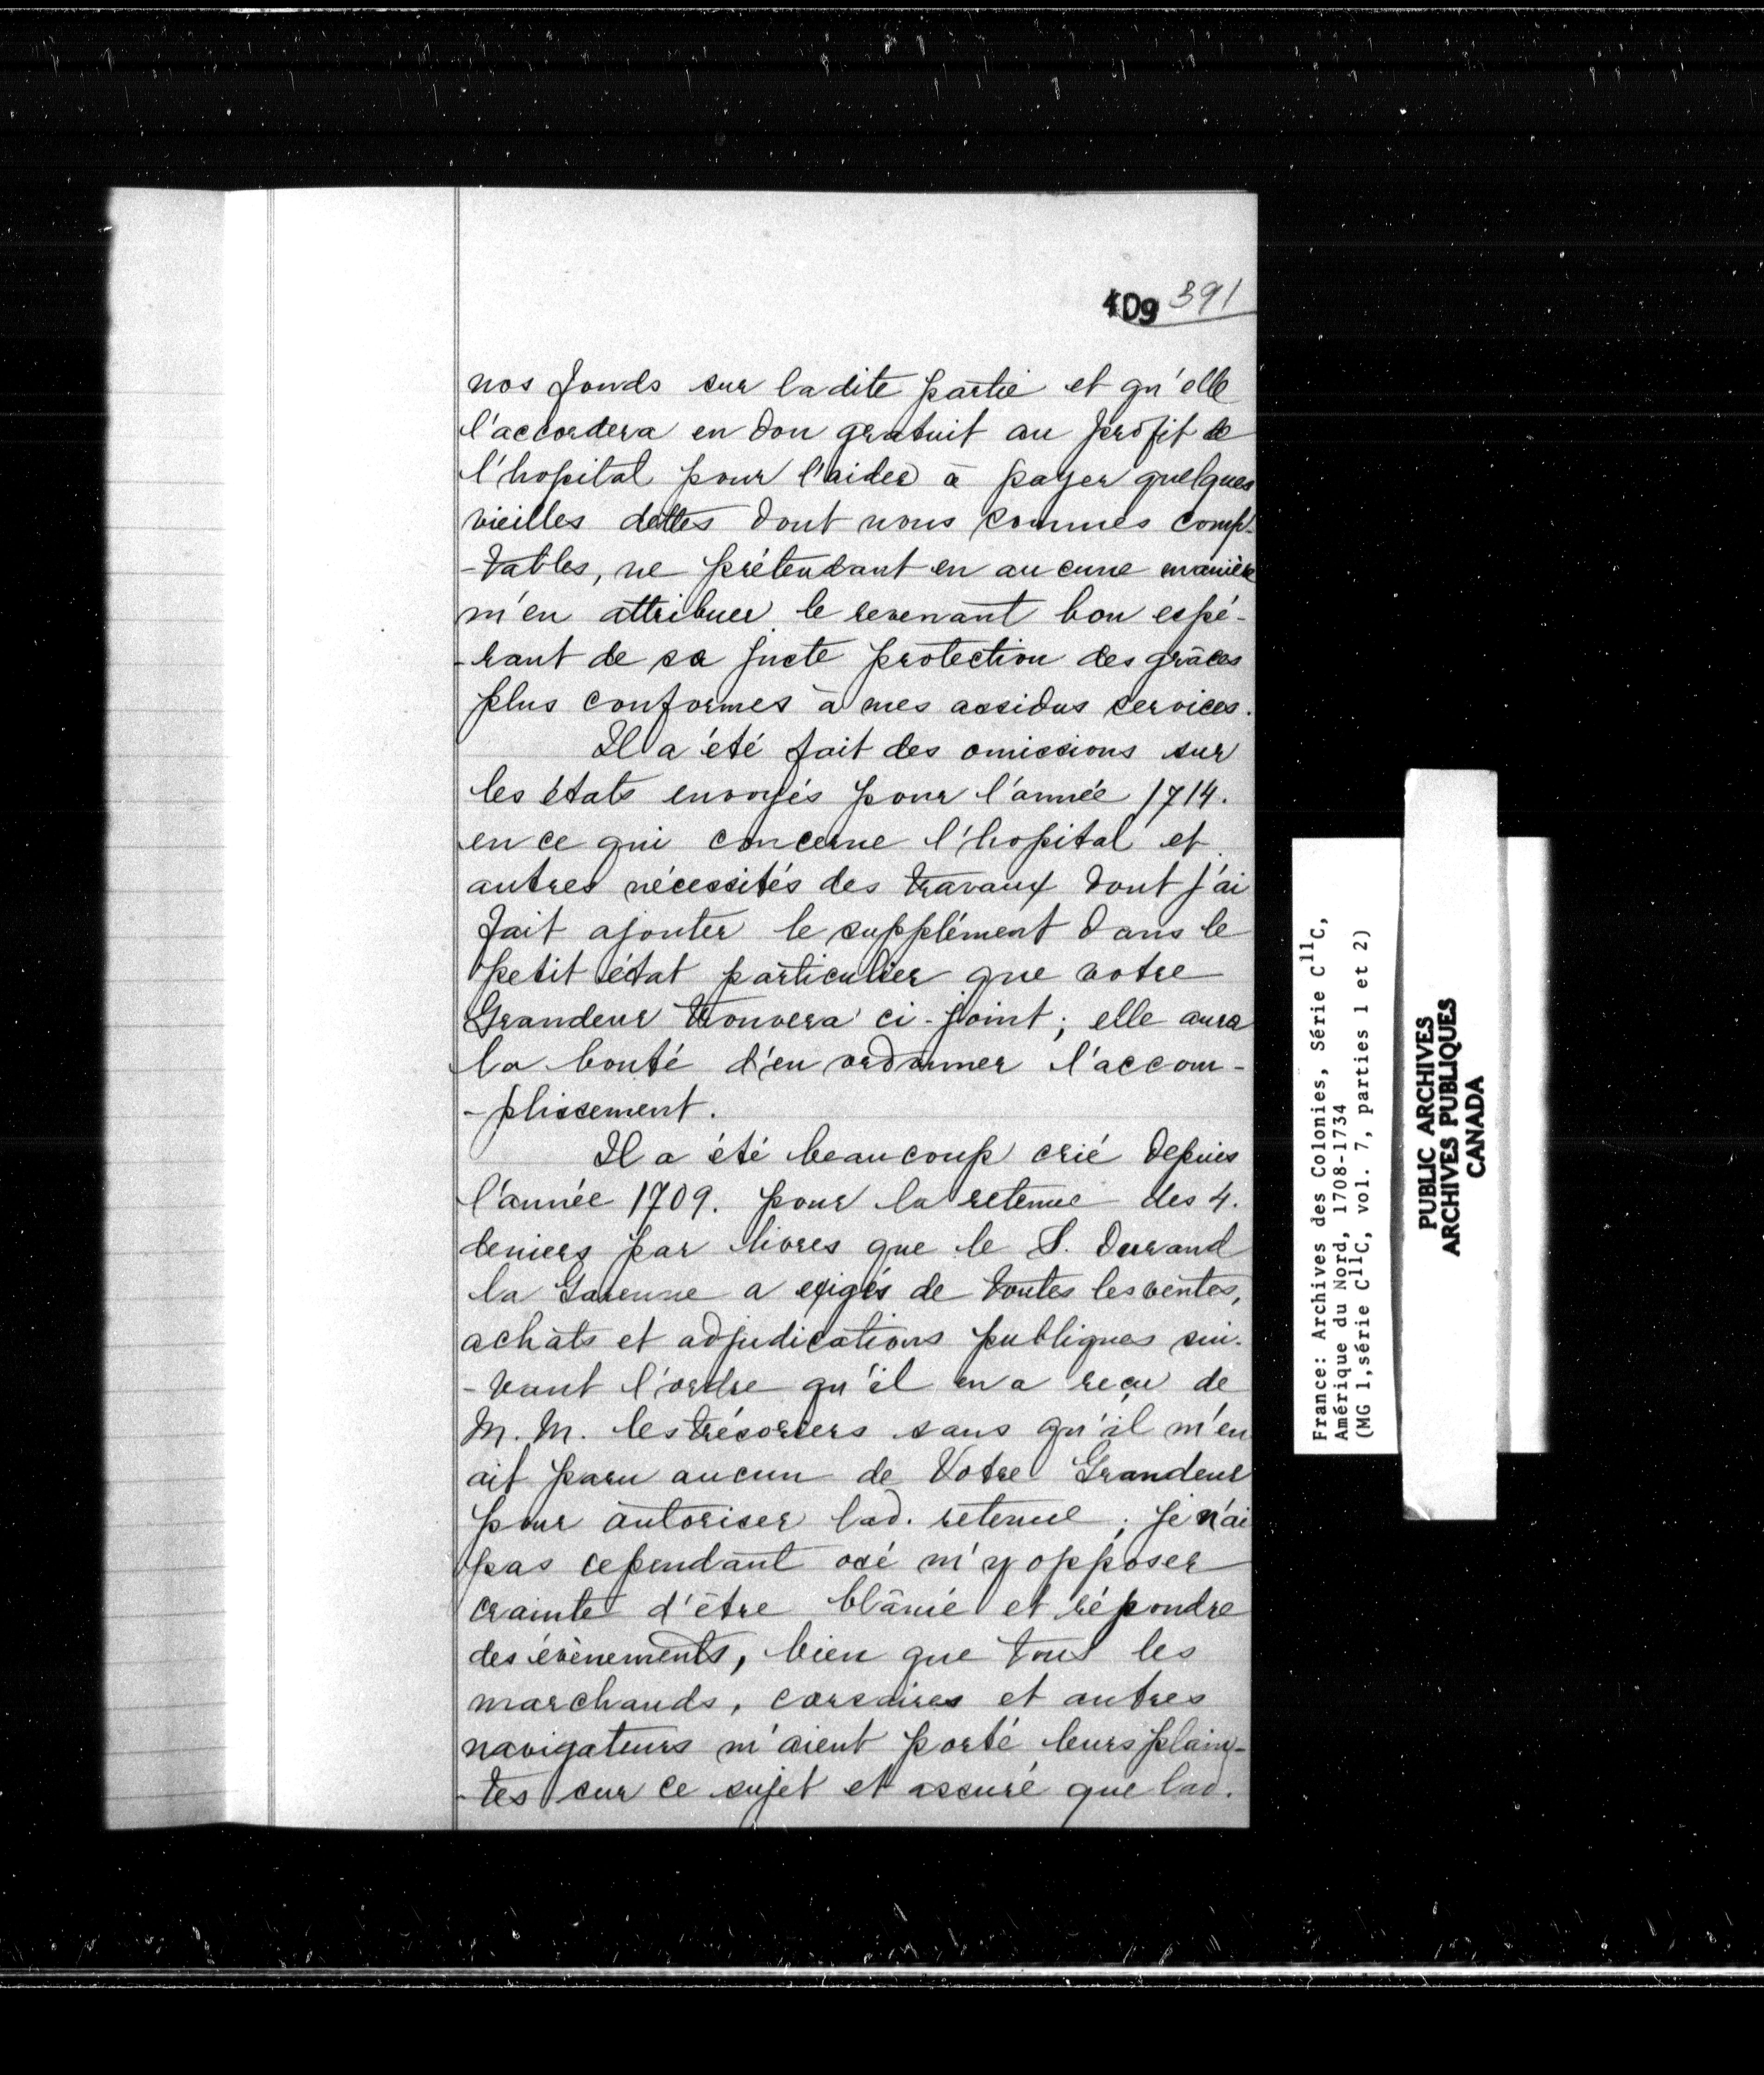 409 391
nos fonds sur ladite partie et qu'elle
l'accordera en don gratuit au profit de
l'hopital pour l'aider à payer quelques
vieilles dettes dont nous sommes comp-
-tables, ne prétendant en aucune manière
m'en attribuer le revenant bon espé-
-rant de sa juste protection des grâces
plus conformes à mes assidus services.
Il a été fait des omissions sur
les états envoyés pour l'année 1714.
en ce qui concerne l'hopital et
autres nécessités des travaux dont j'ai
fait ajouter le supplément dans le
petit état particulier que votre
Grandeur trouvera ci-joint; elle aura
la bonté d'en ordonner l'accom-
-plissement.
Il a été beaucoup crié depuis
l'année 1709. pour la retenue des 4.
deniers par livres que le S. Durand
la Garenne a exigés de toutes les ventes,
achats et adjudications publiques sui-
-vant l'ordre qu'il en a reçu de
M. M. les trésoriers sans qu'il m'en
ait paru aucun de Votre Grandeur
pour autoriser lad. retenue; je n'ai
pas cependant osé m'y opposer
crainte d'être blâmé et répondre
des évènements, bien que tous les
marchands, corsaires et autres
navigateurs m'aient porté leurs plain-
-tes sur ce sujet et assuré que lad.
France: Archives des Colonies, Série C11C,
Amérique du Nord, 1708-1734
(MG 1,série C11C, vol. 7, parties 1 et 2)
PUBLIC ARCHIVES
ARCHIVES PUBLIQUES
CANADA